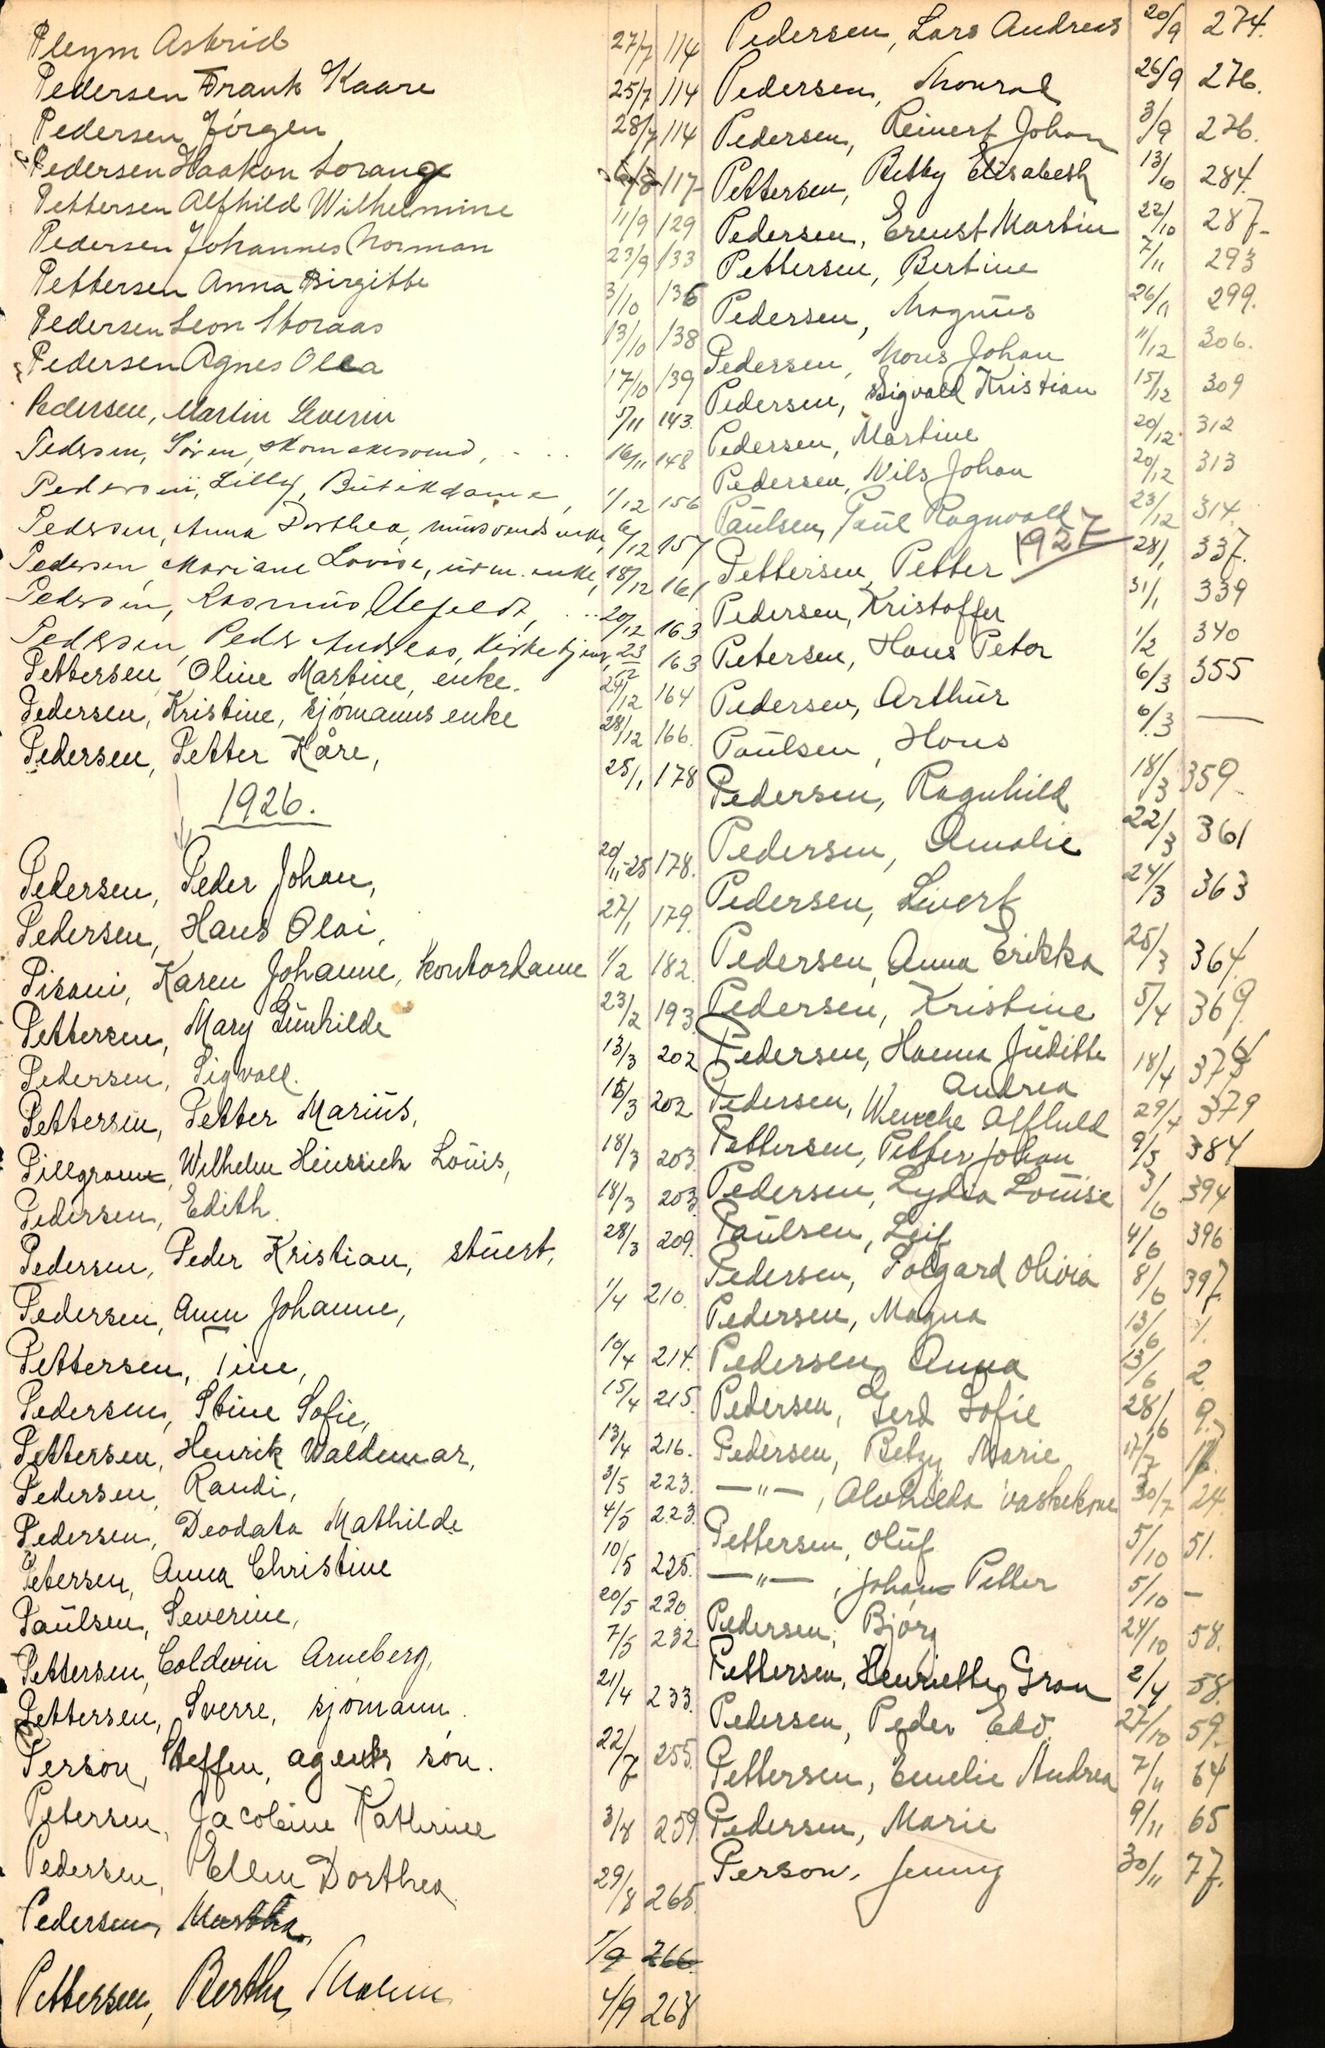 Pleym Astrid 27/7 114
Pedersen Frank Kaare 25/7 114
Pedersen Jörgen 28/7 114
Pedersen Haakon Lorange 6/8 117
Pettersen Alfhild Wilhelmine 11/9 129
Pedersen Johannes Norman 23/9 133
Pettersen Anna Birgitte 3/10 136
Pedersen Leon Storaas 13/10 138
Pedersen Agnes Olea 17/10 139
Pedersen, Martin Severin 5/11 143
Pedersen, Sören, skomakersvend, 16/11 148
Pedersen, Lilly, Butikdame, 1/12 156
Pedersen, Anna Dorthea, enke, 6/12 157
Pedersen, Mariane Lovise, urm. enke, 18/12 161
Pedersen, Rasmus 20/12 163
Pedersen, Peder Andreas, Kirketjener, 23/12 163
Pettersen, Oline Martine, enke. 24/12 164
Pedersen, Kristine, sjömanns enke 28/12 166.
Pedersen, Petter Kåre, 25/1 178
1926.
Pedersen, Peder Johan, 20/11-25 178.
Pedersen, Hans Olai, 27/1 179.
Pisani, Karen Johanne, Kontordame 1/2 182
Pettersen, Mary Gunhilde 23/2 193
Pedersen, Sigvall. 13/3 202
Pettersen, Petter Marius, 15/3 202
Pillgram, Wilhelm Heinrich Louis, 18/3 203
Pedersen, Edith. 18/3 203
Pedersen, Peder Kristian, stuert, 28/3 209.
Pedersen, Ann Johanne, 1/4 210.
Pettersen, Tine, 10/4 214.
Pedersen, Stine Sofie, 15/4 215.
Pettersen, Henrik Waldemar, 13/4 216.
Pedersen, Randi, 3/5 223.
Pedersen, Deodata Mathilde 4/5 223.
Petersen, Anna Christine 10/5 225.
Paulsen, Severine, 20/5 230
Pettersen, Coldevin Arneberg, 7/5 232
Pettersen, Sverre, sjömann. 21/4 233.
Person, Steffen, agents sön. 22/7 255.
Petersen, Jacobine Kathrine 3/8 259
Pedersen, Ellen Dorthea 29/8 265
Pedersen, Martha 1/9 266.
Pettersen, Berthe Malene 4/9 268
Pedersen, Lars Andreas 20/9 274.
Pedersen, Thoural 26/9 276.
Pedersen, Reinert Johan 3/9 276.
Pettersen, Betty Elisabeth 13/10 284.
Pedersen, Ernst Martin 22/10 287.
Pettersen, Bertine 7/11 293
Pedersen, Magnus 26/11 299.
Pedersen, Mons Johan 11/12 306.
Pedersen, Sigvald Kristian 15/12 309
Pedersen, Martine 20/12 312
Pedersen, Nils Johan 20/12 313
Paulsen, Paul Ragnvald 23/12 314.
1927
Pettersen, Petter 28/1 337.
Pedersen, Kristoffer 31/1 339
Petersen, Hans Peter 1/2 340
Pedersen, Arthur 6/3 355
Paulsen, Hans 6/3 —
Pedersen, Ragnhild 18/3 359
Pedersen, Amalie 22/3 361
Pedersen, Sivert 24/3 363
Pedersen, Anna Erikka 25/3 364
Pedersen, Kristine 5/4 369
Pedersen, Hanna Juditte Andrea 18/4 376
Pedersen, Wenche Alfhild 29/4 379
Pettersen, Petter Johan 9/5 384
Pedersen, Lydia Louise 3/6 394
Paulsen, Leif 4/6 396
Pedersen, Solgard Olivia 8/6 397.
Pedersen, Magna 13/6 1.
Pedersen, Anna 13/6 2
Pedersen, Gerd Sofie 28/6 9.
Pedersen, Betzy Marie 17/7 17
—"—, Alvhilda vaskekone 30/7 24.
Pettersen, Oluf 5/10 51.
—"—, Johan Petter 5/10 —
Pedersen, Bjørg 24/10 58.
Pettersen, Henriette Gran 2/4 58.
Pedersen, Peder Edv. 27/10 59.
Pettersen, Emelie Andrea 7/11 64
Pedersen, Marie 9/11 65
Person, Jenny 30/11 77.